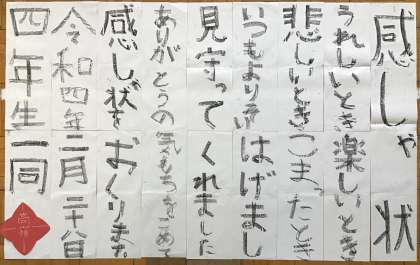 感しゃ状
うれしいとき楽しいとき
悲しいときこまったとき
いつもよりそいはげまし
見守ってくれました
ありがとうの気もちをこめて
感しゃ状をおくります。
令和四年二月二十八日
四年生一同